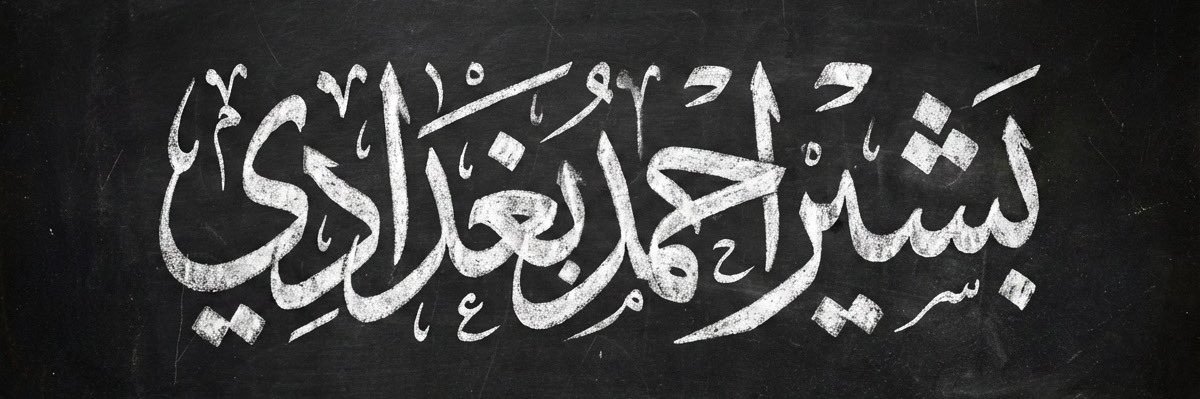 بشير احمد بغدادي